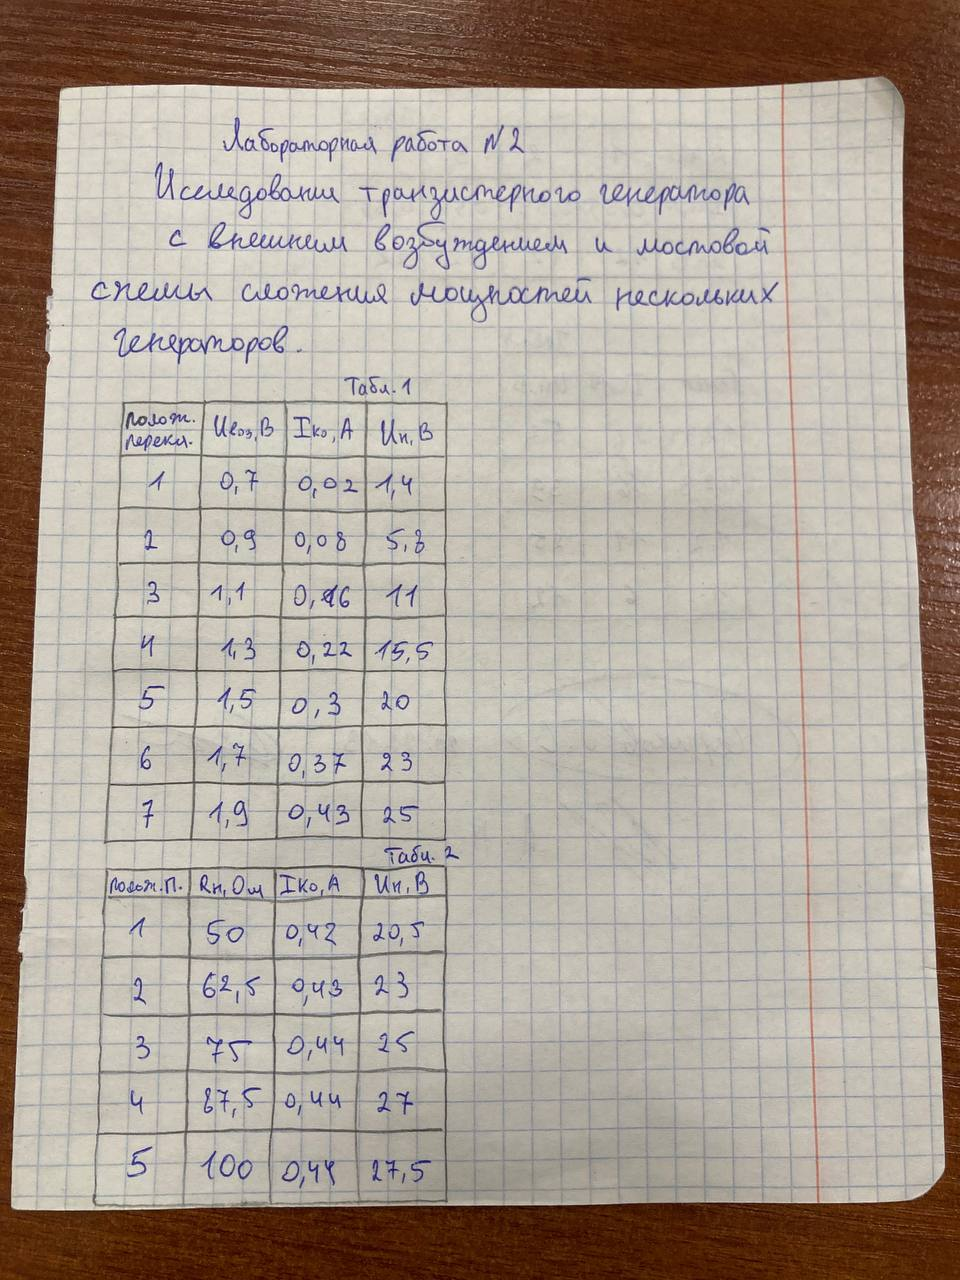 Лабораторная работа №2
Исследовании транзистерного генератора
с внешним возбуждением и мостовой
схемы сложения мощностей нескольких
генераторов.
Табл. 1
Полож. перекл. Uвоз, В Iко, А Uн, В
1 0,7 0,02 1,4
2 0,9 0,08 5,8
3 1,1 0,16 11
4 1,3 0,22 15,5
5 1,5 0,3 20
6 1,7 0,37 23
7 1,9 0,43 25
Табл. 2
Полож. П. Rн, Ом Iко, А Uн, В
1 50 0,42 20,5
2 62,5 0,43 23
3 75 0,44 25
4 87,5 0,44 27
5 100 0,44 27,5